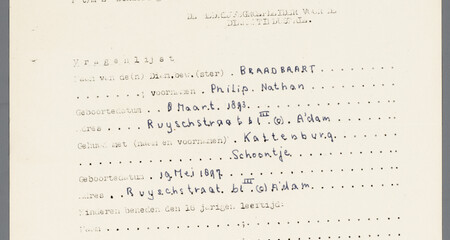 Vragenlijst
Naam van de(n) Dien.bew.(ster) . BRAADBAART . . . . .
. . . . . . . ; voornamen . Philip. Nathan . . . . .
Geboortedatum . . 8 Maart. 1893 . . . . .
Adres . . . Ruyschstraat 61 III (c) A'dam . . . .
Gehuwd met (naam en voornamen) . Kattenburg. . .
. . . . . . . . . . Schoontje. . . . .
Geboortedatum . . 19 Mei 1897. . . . .
Adres . . Ruyschstraat. 61 III (c) A'dam . . . .
Kinderen beneden den 16 jarigen leeftijd:
Naam